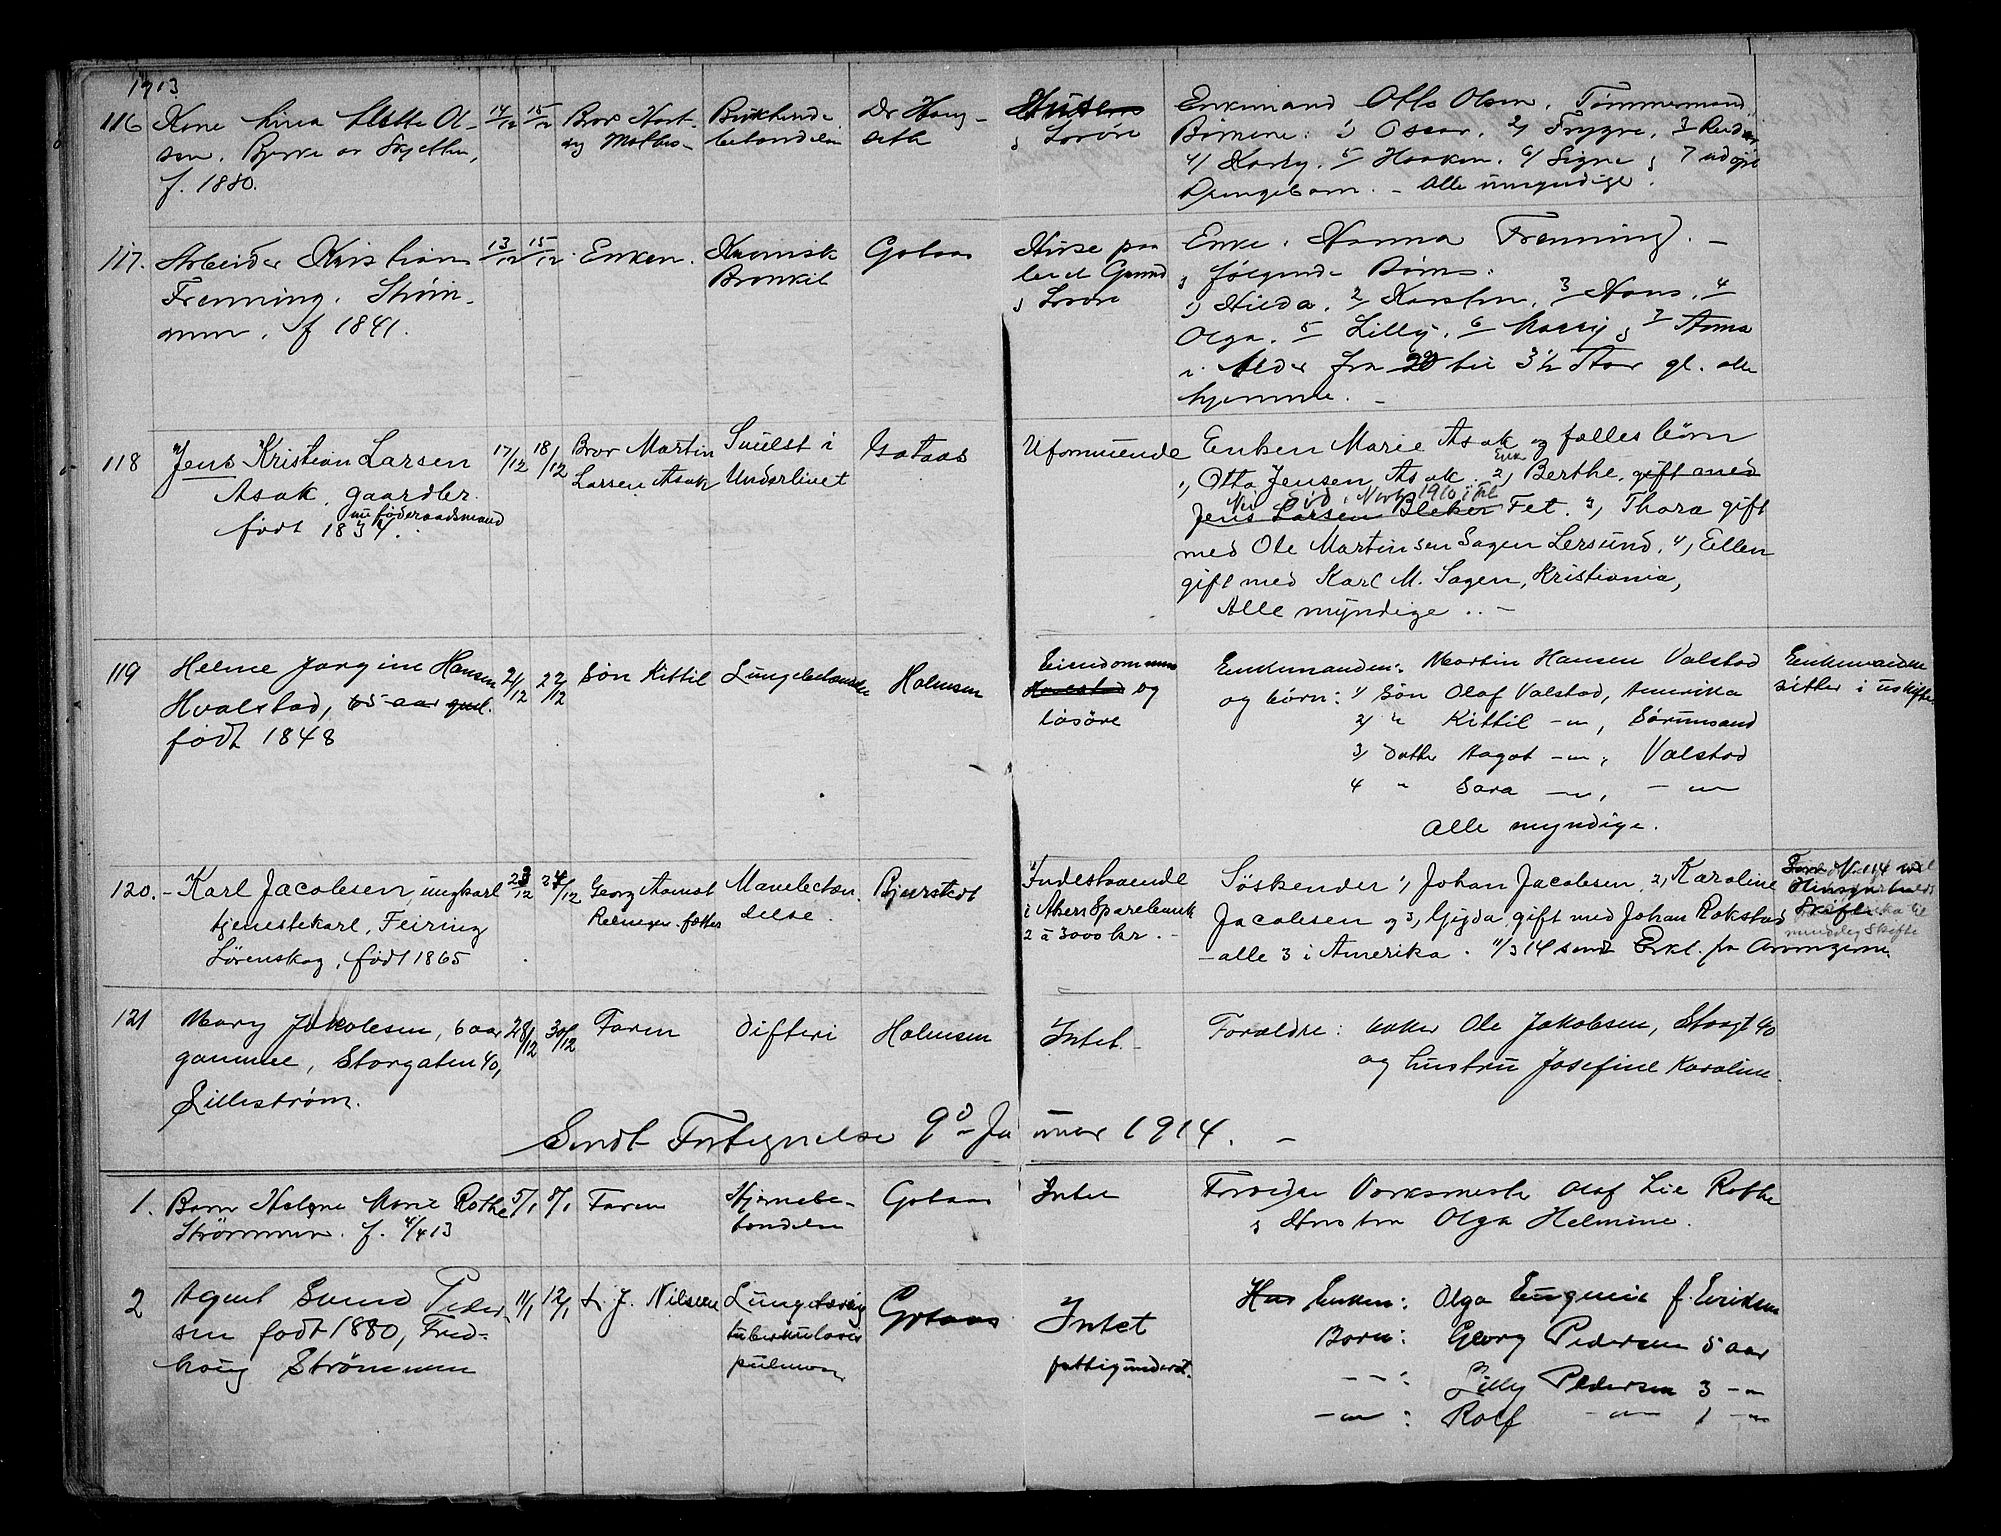 1913
116 Kone Lina Olsen. Bjerke av Skjetten, f. 1880.
14/12 15/12
Bror
Bukhindebetændelse
Dr Haugseth
Løsøre
Enkemand Otto Olsen. Tømmermand
Børnene: 1) Oscar. 2) Trygve. 3 Reidar
4/ Karby. 5 Haakon. 6/ Signe 7 udøpt
Pigebarn. - Alle umyndige.
117. Arbeider Kristian
Frenning. Strøm-
men. f 1841.
13/12 15/12
Enken.
Kronisk
Bronkit
Gotaas
Huse paa
leiet Grund
& Løsøre
Enke. Hanna Frenning. -
& følgende Børn:
1) Hilda. 2 Karsten. 3 Hans. 4
Olga. 5 Lilly. 6 & 7 Anna
i Alder fra 20 til 3 1/2 Aar gl. alle
hjemme. -
118 Jens Kristian Larsen
Asak. gaardbr.
nu føderaadsmand
født 1834.
17/12 18/12
Bror Martin
Larsen Asak
Svulst i
Underlivet
Gotaas
Uformuende
Enken Marie Asak og fælles børn
1, Otto Jensen, Asak. 2, Enke Berthe. gift med
Jens Larsen Bleker Fet. 3, Thora gift
med Ole Martinsen Sagen Lersund. 4, Ellen
gift med Karl M. Sagen, Kristiania,
Alle myndige . . -
119 Helene Jørgine Hansen
Hvalstad, 65 aar gml.
født 1848
21/12 22/12
Søn Kittil
Lungebetændelse
Holmsen
Eiendommen
Hvalstad og
løsøre
Enkemanden: Martin Hansen Valstad
og børn: 1/ Søn Olaf Valstad, Amerika
2/ " Kittil -"-, Sørumsand
3/ Datter Aagot -"-, Valstad
4 " Sara -"-, -"-
Alle myndige.
Enkemanden
sitter i uskifte
120. - Karl Jacobsen, ungkarl
tjenestekarl, Feiring
Lørenskog, født 1865
23/12 24/12
Georg Aamot
Relingen. fætter
Mavebetæn-
delse.
Bjerstedt
Indestaaende
i Aker Sparebank
2 à 3000 kr. -
Søskende: 1, Johan Jacobsen, 2, Karoline
Jacobsen og 3, Gyda, gift med Johan Rokstad
- alle 3 i Amerika. 11/3 14 sendt Erkl. fra Arvingerne.
121 Mary Jakobsen, 6 aar
gammel, Storgaten 40,
Lillestrøm.
28/12 30/12
Faren
Difteri
Holmsen
Intet.
Forældre: baker Ole Jakobsen, Storgt 40
og hustru Josefine Karoline.
Sendt Fortegnelse 9de Januar 1914. -
1. Barn Helene Marie Rothe
Strømmen. f. 4/4 13
5/1 8/1
Faren
Hjernebe-
tændelse
Gotaas
Intet
Forældre Verksmester Olaf Lie Rothe
& Hustru Olga Helmine.
2 Agent Svend Peder-
sen født 1880, Fred-
haug Strømmen
11/1 12/1
L. J. Nilsen
Lungetæring
tuberkulosis
pulmon
Gotaas
Intet
fattigunderst.
Enken: Olga Eugenie f. Eriksen
Børn: Georg Pedersen 5 aar
- - : Lilly Pedersen 3 -"-
-"- : Rolf -"- 1 -"-